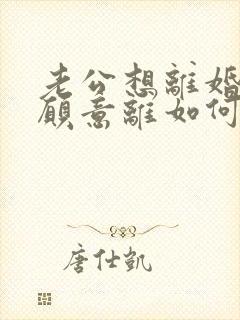 老公想離婚
願意離如何
唐仕凱